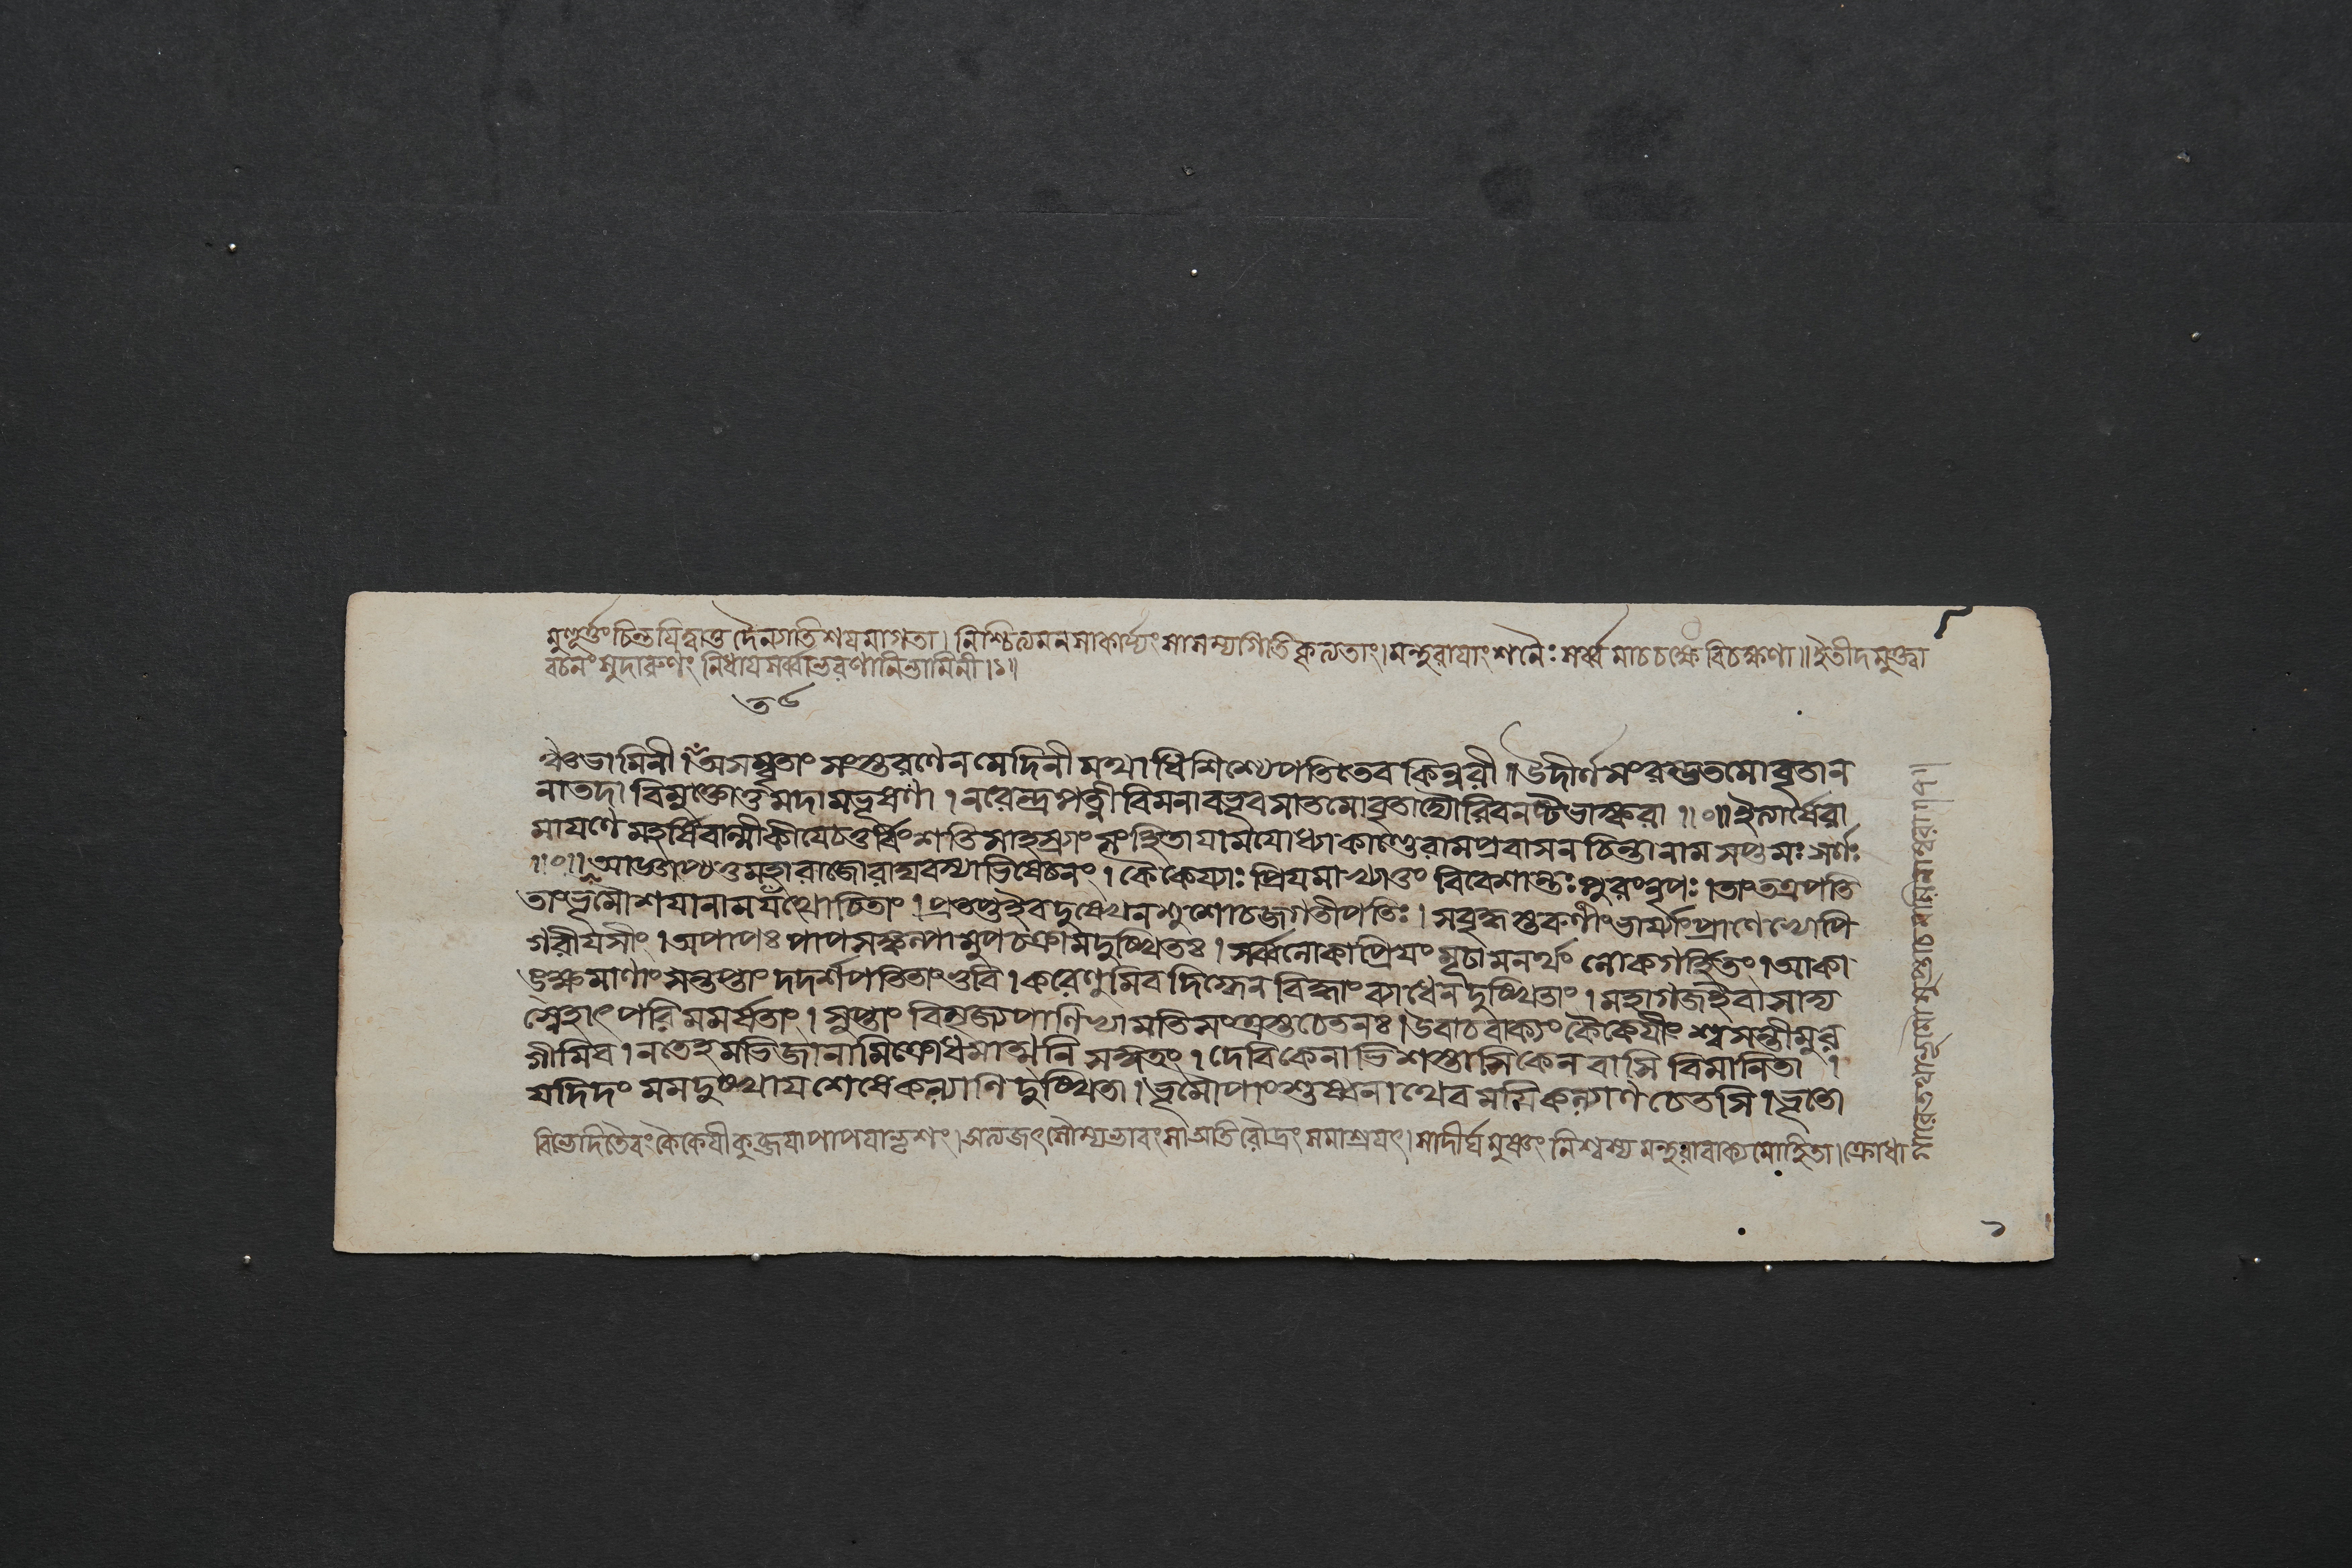 মুহূর্ত্তং চিন্তযিত্বাতু দৈনগতিশযমাগতা। নিশ্চিত্যমনসাকার্য্যং সাসম্যগিতিকৃত্যতাং। মন্থরাযাং শনৈঃ সর্ব্বমাচচক্ষে বিচক্ষণা॥ ইতীদমুক্ত্বা
বচনং সুদারুণং নিধায সর্ব্বাভরণানি ভামিনী।১॥
ভামিনী। অসম্বৃতাং সংস্তরণেন মেদিনী মথাধিশিশ্যে পতিতেব কিন্নরী॥ উদীর্ণসংরম্ভতমোবৃতান
নাতদা বিমুক্তোত্তমদামভূষণা। নরেন্দ্রপত্নী বিমনা বভূবসা তমোবৃতা দ্যৌরিবনষ্টভাস্করা॥০॥ ইত্যার্ষেরা
মাযণে মহর্ষিবাল্মীকীযে চতুর্ব্বিংশতিসাহস্র্যাং সংহিতাযামযোধ্যাকাণ্ডে রামপ্রবাসনচিন্তানাম সপ্তমঃ সর্গঃ
॥০॥ আজ্ঞাপ্যতুমহারাজো রাঘবস্যাভিষেচনং। কৈকেয্যাঃ প্রিযমাখ্যাতুং বিবেশান্তঃপুরংনৃপঃ। তাং তত্রপতি
তাংভূমৌ শযানামযথোচিতাং। প্রতপ্তইব দুঃখেন শুশোচ জগতীপতিঃ। সবৃদ্ধস্তরুণীং ভার্য্যাং প্রাণেভ্যোপি
গরীযসীং। অপাপঃ পাপসঙ্কল্পামুপচক্রাম দুঃখিতঃ। সর্ব্বলোকাপ্রিযং মনর্থং লোকগর্হিতং। আকা
ঙ্ক্ষমাণাং সন্তপ্তাং দদর্শ পতিতাং ভুবি। করেণুমিব দিগ্ধেন বিদ্ধাং ব্যাধেন দুঃখিতাং। মহাগজইবাসাদ্য
স্নেহাৎ পরিমমর্ষতাং। সুপ্তাং বিমৃজ্যপাণিভ্যামতিসংত্রস্তচেতনঃ। উবাচবাক্যং কৈকেযীং শ্বসন্তীমুর
গীমিব। নতেহমভিজানামি ক্রোধমাত্মনি সংশ্রিতং। দেবি কেনাভিশস্তাসি কেন বাসি বিমানিতা।
যদিদং মমদুঃখায শেষে কল্যাণি দুঃখিতা। ভূমৌ পাংশুষ্বনাথেব মযি কল্যাণচেতসি। ভূতো
কৈকেযী কুব্জযা পাপযা ভৃশং। অত্যজৎ সৌম্যভাবং সা অতিরৌদ্রং সমাশ্রযৎ। সাদীর্ঘমুষ্ণং নিশ্বস্য মন্থরাবাক্যমোহিতা। ক্রোধা